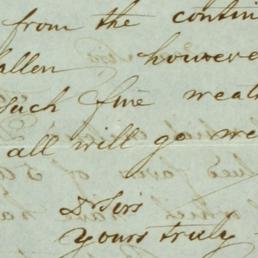 from the contin
allen however
such fine weat
all will go we
Dr Sirs
Yours truly